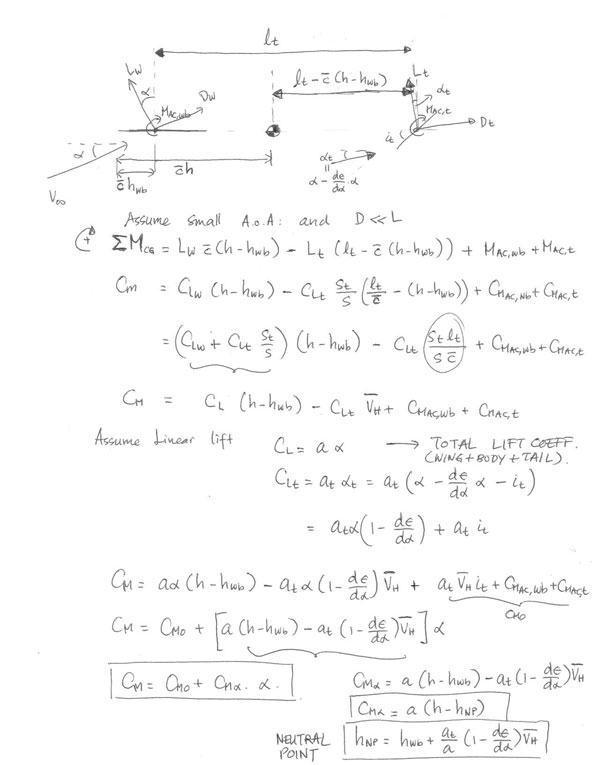 l_t
L_W
α
M_AC,wb
D_W
l_t - c̄(h-h_wb)
L_t
α_t
M_AC,t
D_t
i_t
α
V_∞
c̄h_wb
c̄h
α_t
=
α - dε/dα · α
Assume small A.o.A: and D ≪ L
(+ ΣM_CG = L_W c̄(h-h_wb) - L_t (l_t - c̄(h-h_wb)) + M_AC,wb + M_AC,t
C_M = C_LW (h-h_wb) - C_Lt S_t/S (l_t/c̄ - (h-h_wb)) + C_MAC,wb + C_MAC,t
= (C_LW + C_Lt S_t/S) (h-h_wb) - C_Lt (S_t l_t / S c̄) + C_MAC,wb + C_MAC,t
C_M = C_L (h-h_wb) - C_Lt V̄_H + C_MAC,wb + C_MAC,t
Assume Linear lift
C_L = a α → TOTAL LIFT COEFF.
(WING+BODY+TAIL).
C_Lt = a_t α_t = a_t (α - dε/dα α - i_t)
= a_t α(1 - dε/dα) + a_t i_t
C_M = aα (h-h_wb) - a_t α (1 - dε/dα) V̄_H + a_t V̄_H i_t + C_MAC,wb + C_MAC,t
C_M0
C_M = C_M0 + [a (h-h_wb) - a_t (1 - dε/dα) V̄_H] α
C_M = C_M0 + C_Mα · α.
C_Mα = a (h-h_wb) - a_t (1 - dε/dα) V̄_H
C_Mα = a (h-h_NP)
NEUTRAL
POINT
h_NP = h_wb + a_t/a (1 - dε/dα) V̄_H